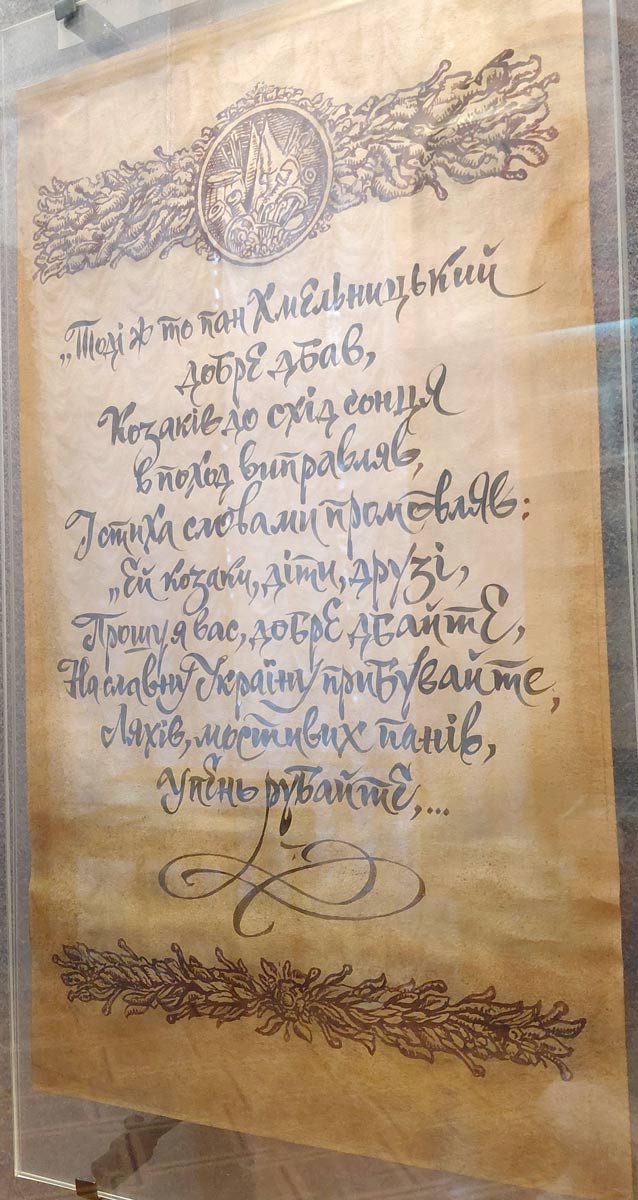 „Тоді ж то пан Хмельницький
добре дбав,
Козаків до схід сонця
в поход виправляв,
І стиха словами промовляв:
„Ей козаки, діти, друзі,
Прошу я вас, добре дбайте,
На славну Україну прибувайте,
Ляхів, мостивих панів,
У пень рубайте,...